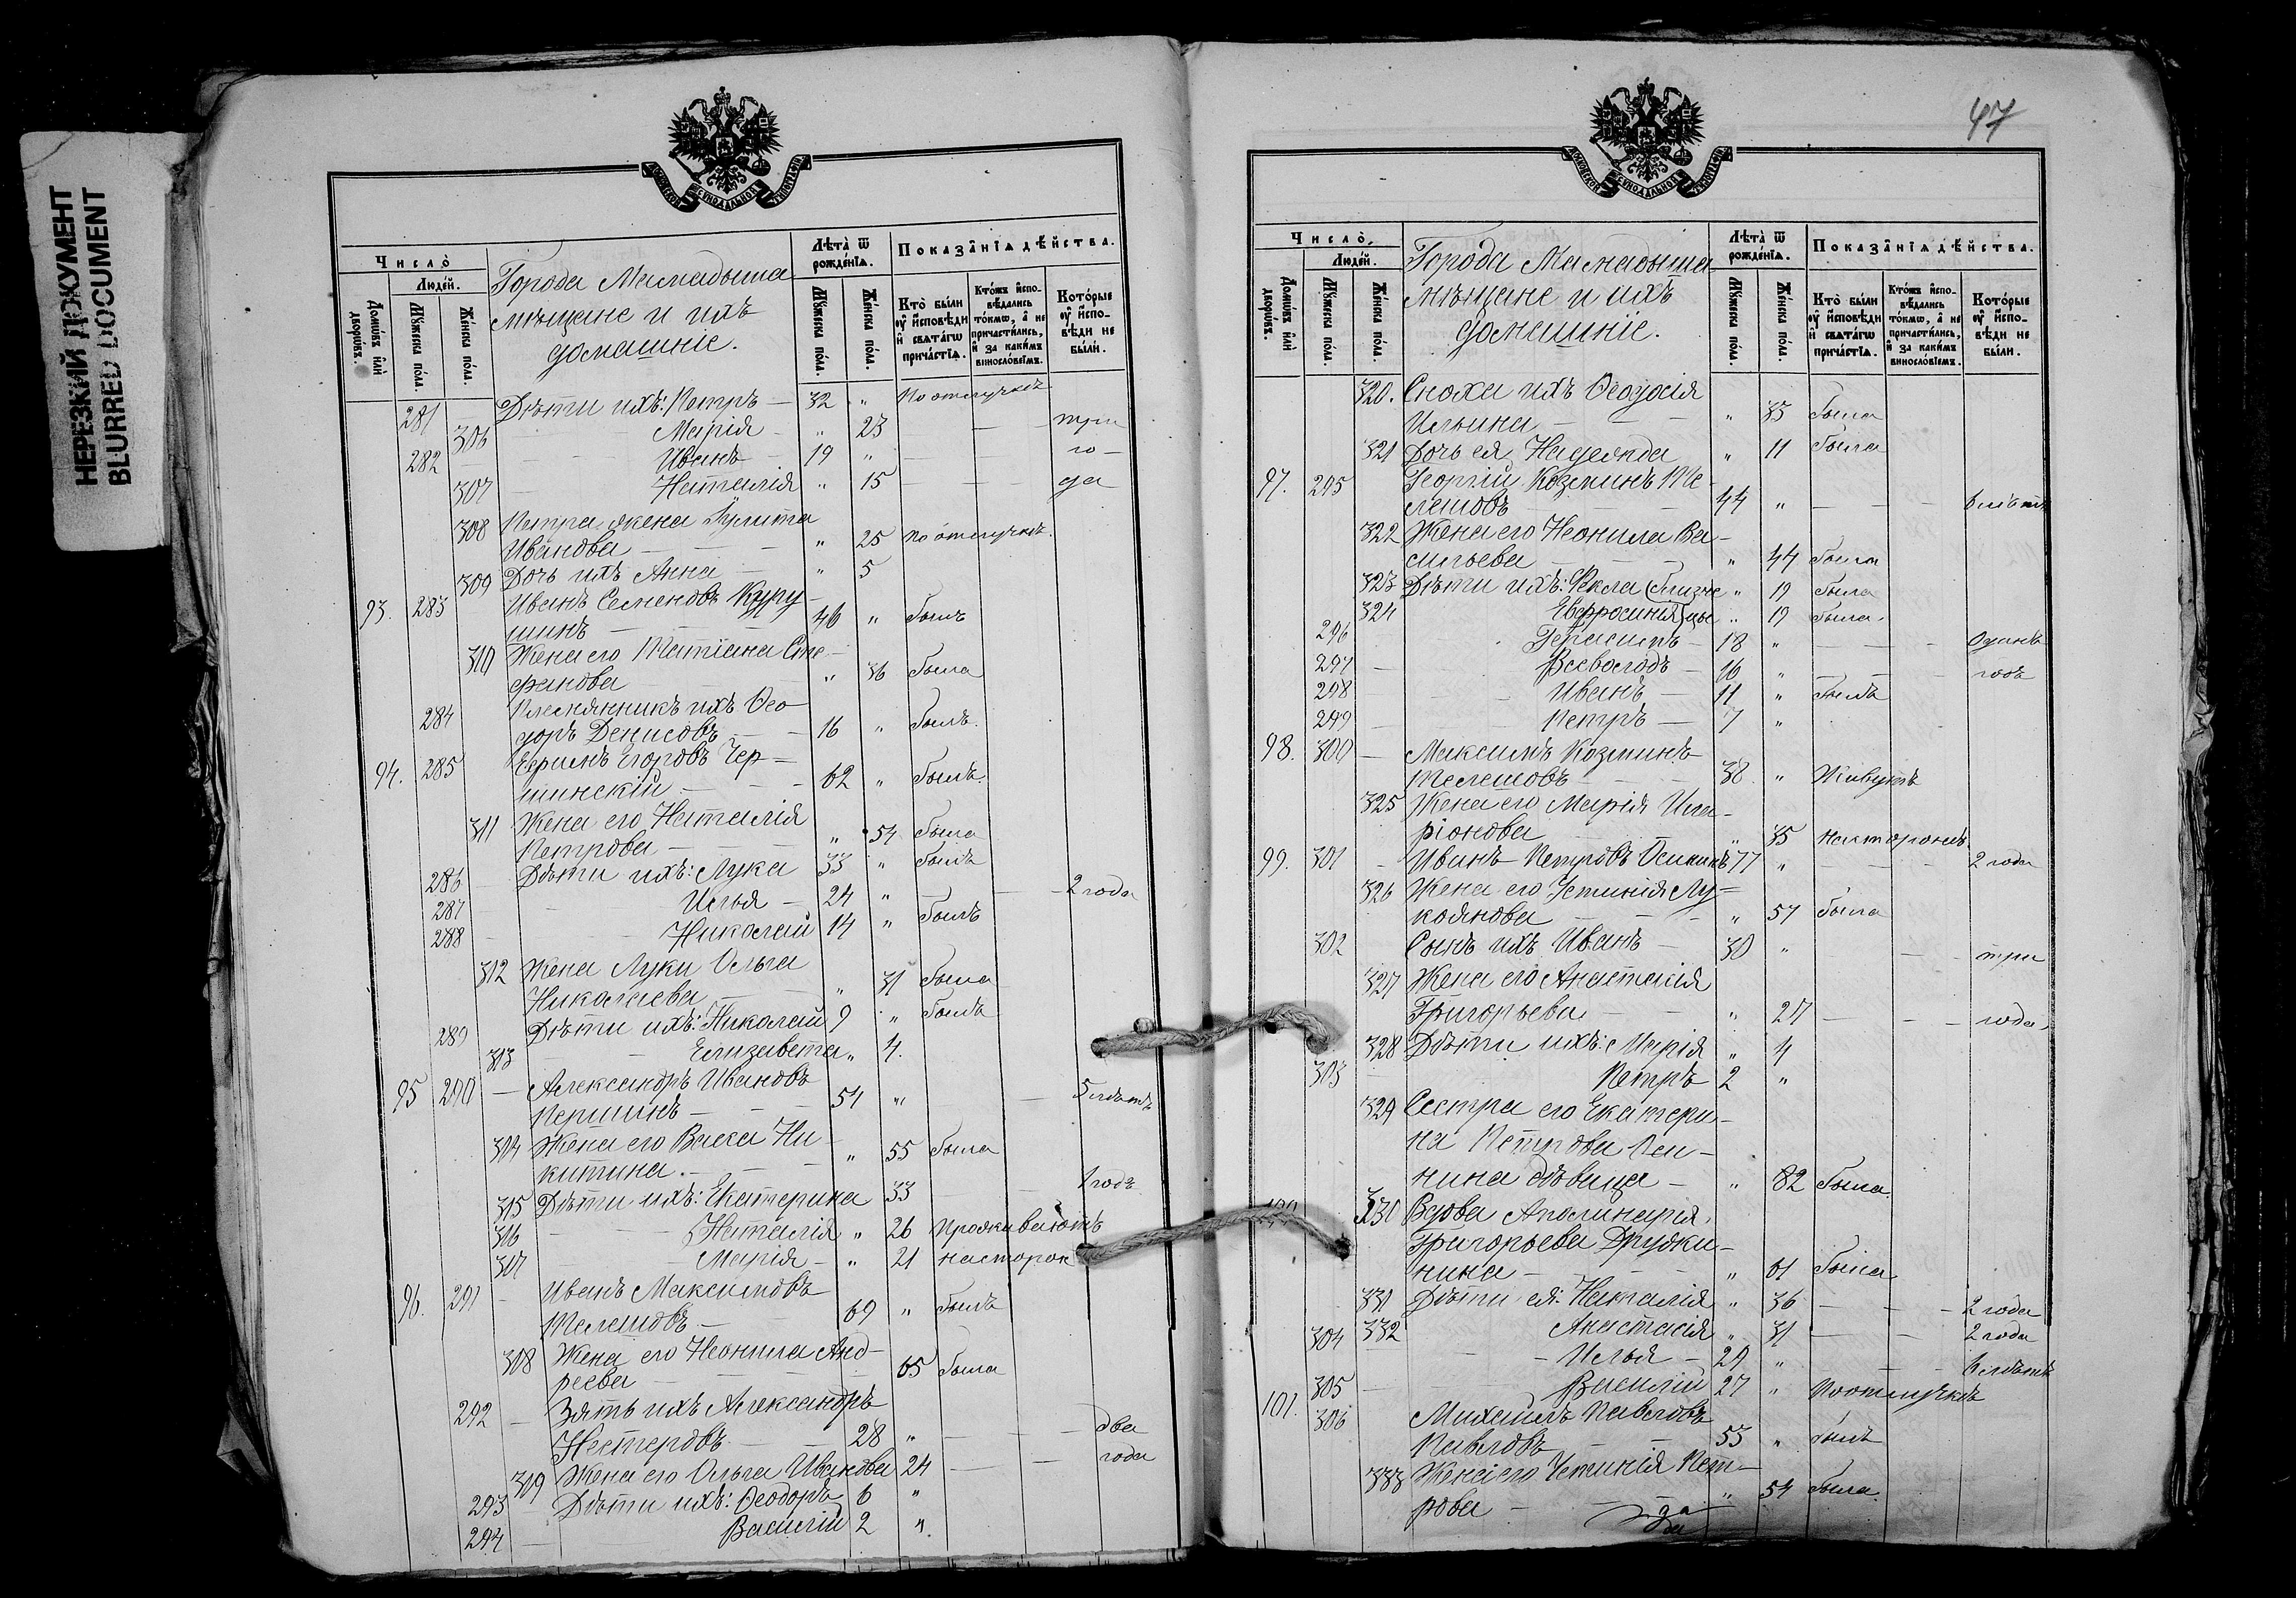 НЕРЕЗКИЙ ДОКУМЕНТ
BLURRED DOCUMENT
МОСКОВСКОЙ СѴНОДАЛЬНОЙ ТИПОГРАФІИ
Число̀
Люде́й.
Домѡ́въ и҆лѝ дворѡ́въ.
Мꙋ́жеска по́ла.
Же́нска по́ла.
Города Мамадыша
мѣщане и ихъ
домашніе.
Лѣ́та ѿ рожде́нїѧ.
Мꙋ́жеска по́ла.
Же́нска по́ла.
Показа̑нїѧ дѣ́йства.
Кто̀ бы́ли оу҆ и҆́сповѣди и҆ свѧта́гѡ прича́стїѧ.
Кто́жъ и҆сповѣ́дались то́кмѡ, а҆ не причасти́лись, и҆ за каки́мъ винословїемъ.
Кото́рые оу҆ и҆́сповѣди не бы́ли.
281 Дѣти ихъ: Петръ — 32 " По отлучкѣ
306 Марія — " 23 — три
282 Иванъ — 19 " — го-
307 Наталія " 15 — да
308 Петра жена Іулита
Иванова — " 25 по отлучкѣ.
309 Дочь ихъ Анна — " 5
93. 283 Иванъ Семеновъ Куру-
шинъ — 46 " былъ
310 Жена его Татіана Сте-
фанова — " 36 была
284 Племянникъ ихъ Ѳео-
доръ Денисовъ — 16 " былъ.
94. 285 Ефимъ Егоровъ Чер-
шинскій — 62 " былъ.
311 Жена его Наталія
Петрова — " 54 была
286 Дѣти ихъ: Лука 33 " былъ
287 Илья — 24 " — 2 года
288 Николай 14 " былъ
312 Жена Луки Ольга
Николаева — " 31 была
289 Дѣти ихъ: Николай 9 " былъ
313 Елизавета " 4.
95 290 — Александръ Ивановъ
Першинъ — 54 " — 5 лѣтъ
314 Жена его Васса Ни-
китина. — " 55 была
315 Дѣти ихъ: Екатерина 33 — 1 годъ
316 Наталія " 26 проживаютъ
317 Марія — " 21 на сторон
96. 291 — Иванъ Максимовъ
Телешовъ — 69 " былъ
308 Жена его Неонила Анд-
реева — 65 была
292 — Зять ихъ Александръ
Нестеровъ — 28 " — два
309 Жена его Ольга Иванова 24 — года
293 Дѣти ихъ: Ѳеодоръ 6 "
294 — Василій 2 "
47
МОСКОВСКОЙ СѴНОДАЛЬНОЙ ТИПОГРАФІИ
Число̀.
Люде́й.
Домѡ́въ и҆лѝ дворѡ́въ.
Мꙋ́жеска по́ла.
Же́нска по́ла.
Города Мамадыша
мѣщане и ихъ
домашніе.
Лѣ́та ѿ рожде́нїѧ.
Мꙋ́жеска по́ла.
Же́нска по́ла.
Показа̑нїѧ дѣ́йства.
Кто̀ бы́ли оу҆ и҆́сповѣди и҆ свѧта́гѡ прича́стїѧ.
Кто́жъ и҆сповѣ́дались то́кмѡ, а҆ не причасти́лись, и҆ за каки́мъ винословїемъ.
Кото́рые оу҆ и҆́сповѣди не бы́ли.
320. Сноха ихъ Ѳеодосія
Ильина — " 35 была
321 Дочь ея Надежда " 11 была
97. 295 Георгій Козминъ Те-
лешовъ 44 " — 6 лѣтъ
322 Жена его Неонила Ва-
сильева — " 44 была
323 Дѣти ихъ: Фекла (близне " 19 была
324 Евфросинія цы " 19 была.
296 Герасимъ — 18 " — Одинъ
297 — Всеволодъ — 16 " — годъ
298 Иванъ — 11 " былъ
299 Петръ — 7 "
98. 300 — Максимъ Козминъ
Телешовъ — 38 " Живутъ
325 Жена его Марія Ила-
ріонова — " 35 на сторонѣ
99. 301 — Иванъ Петровъ 77 " — 2 года
326 Жена его Устинія Лу-
коянова — " 57 была
302 Сынъ ихъ Иванъ — 30 " — три
327 Жена его Анастасія
Григорьева — " 27 — года
328 Дѣти ихъ: Марія " 4
303 Петръ 2 "
329 Сестра его Екатери-
на Петрова
нина дѣвица — " 82 была
330 Вдова Аполинарія
Григорьева Дружи-
нина — " 61 была
331 Дѣти ея: Наталія " 36 — 2 года
332 Анастасія " 31 — 2 года
304 — Илья — 29 " — 6 лѣтъ
305 Василій 27 " По отлучкѣ
101. 306 Михаилъ Павловъ
Павловъ — 55 " былъ
333 Жена его Устинія Пет-
рова — " 54 была.